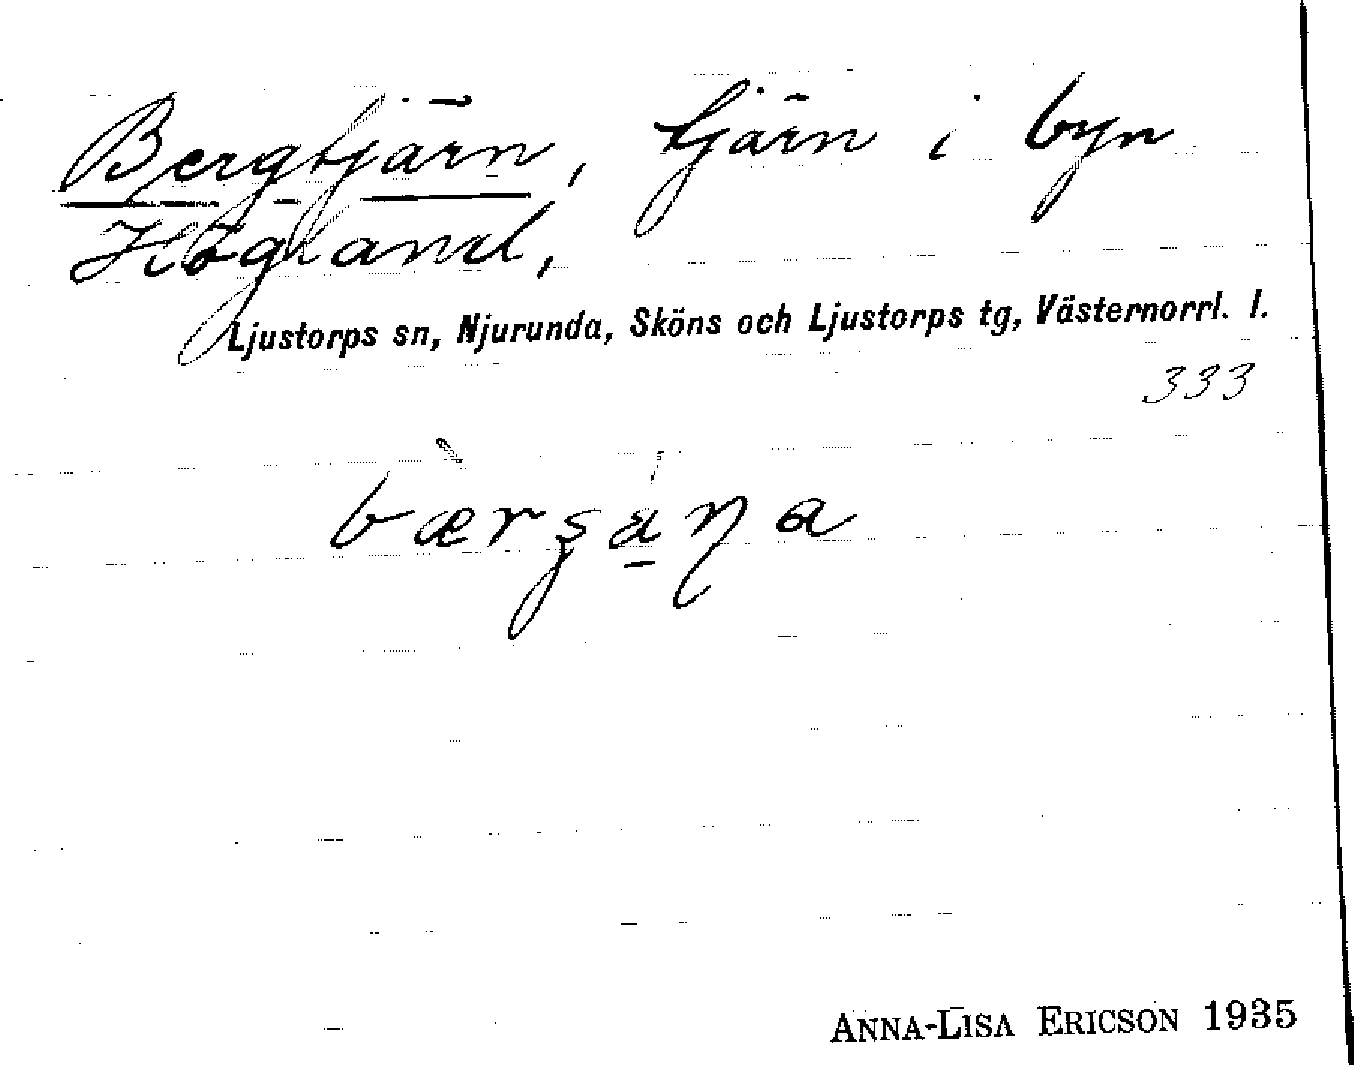 Bergtjärn, tjärn i byn
Högland,
Ljustorps sn, Njurunda, Sköns och Ljustorps tg, Västernorrl. l.
333
ANNA-LISA ERICSON 1935